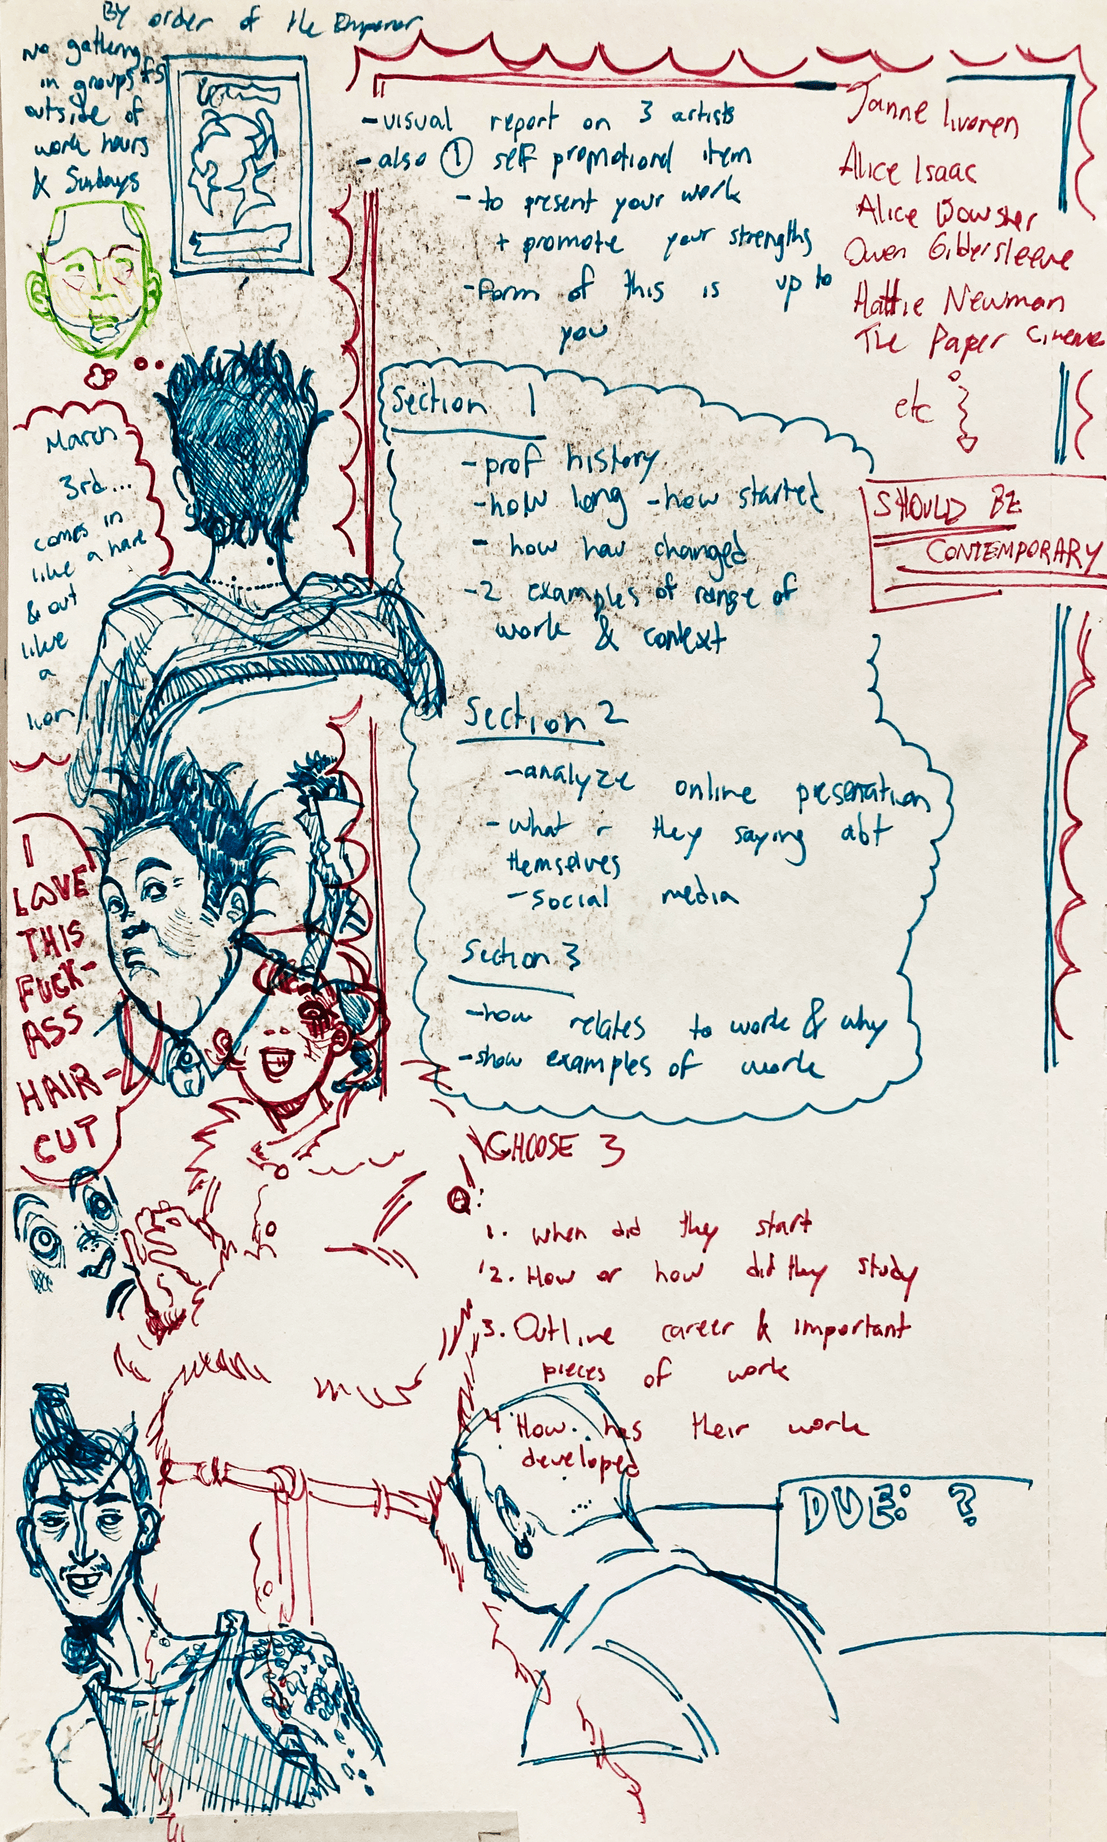 By order of the Emperor
No gathering
in groups of 5
outside of
work hours
& Sundays
-visual report on 3 artists
-also ① self promotional item
-to present your work
+ promote your strengths
-form of this is up to
you
Janne Iivonen
Alice Isaac
Alice Bowster
Owen Gildersleeve
Hattie Newman
The Paper Cinema
etc
SHOULD BE
CONTEMPORARY
March
3rd...
comes in
like a hare
& out
like
a
lion
Section 1
-prof history
-how long -how started
- how hav changed
-2 examples of range of
work & context
Section 2
-analyze online presenation
-what r they saying abt
themselves
-social media
Section 3
-how relates to work & why
-show examples of work
I
LOVE
THIS
FUCK-
ASS
HAIR-
CUT
CHOOSE 3
Q:
1. When did they start
2. How or how did they study
3. Outline career & important
pieces of work
4. How has their work
developed
DUE: ?